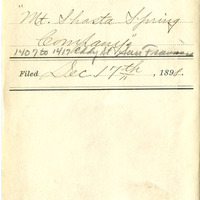 "Mt. Shasta Spring
Company"
1407 to 1417 Eddy St San Francisco
Filed Dec 17th, 1898.